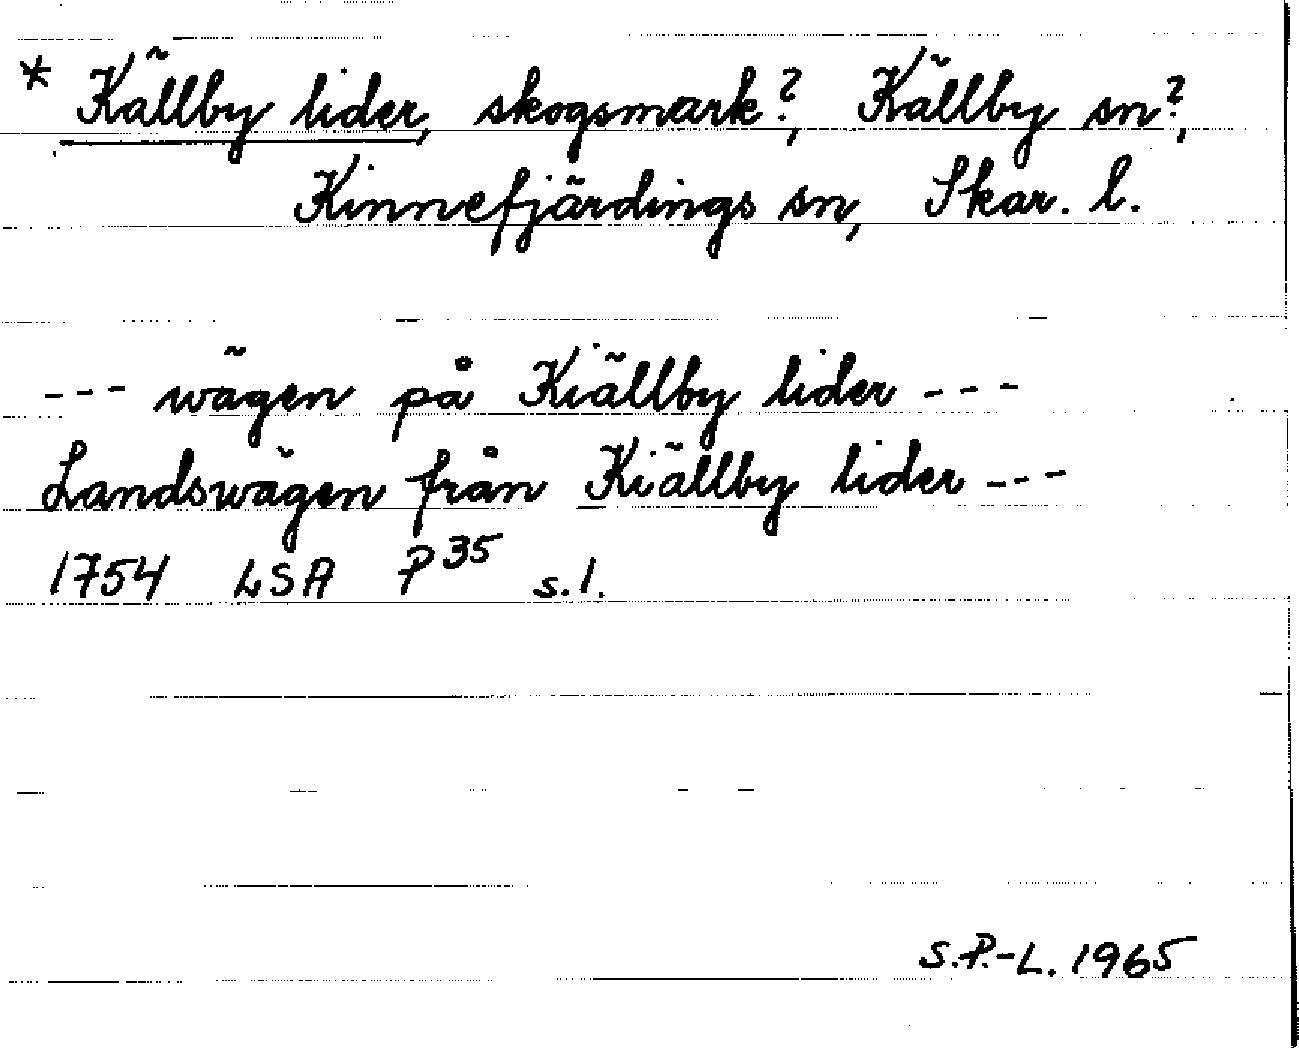 * Källby lider, skogsmark?, Källby sn?,
Kinnefjärdings sn, Skar. l.
--- wägen på Kiällby lider ---
Landswägen från Kiällby lider ---
1754 LSA P 35 s. 1.
S.P.-L. 1965